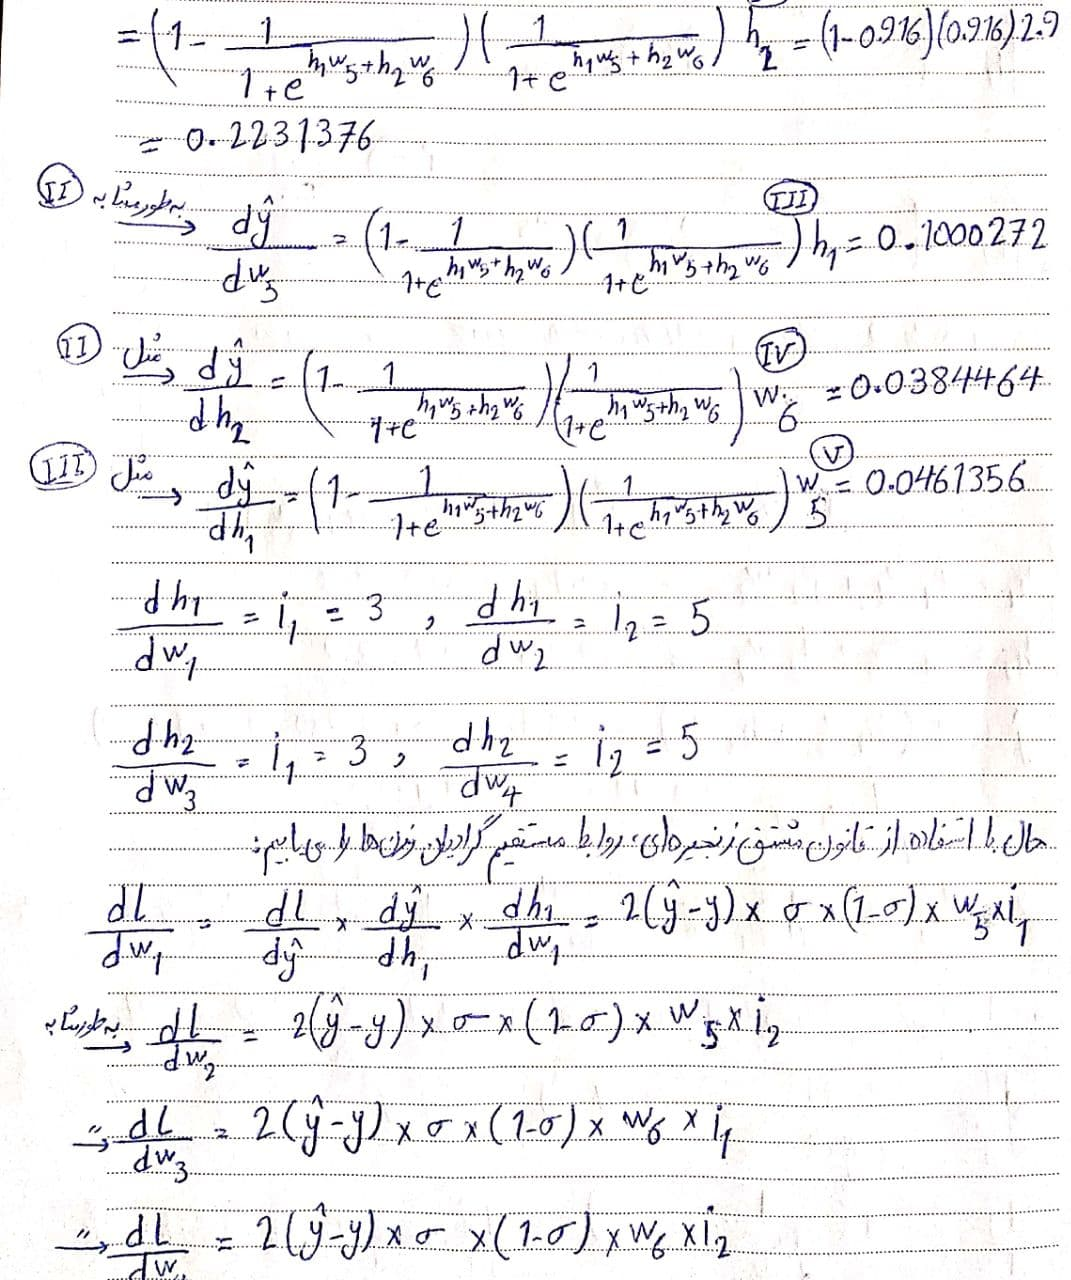 = (1 - 1/(1+e^(h₁w₅+h₂w₆)))(1/(1+e^(h₁w₅+h₂w₆))) h₂ = (1-0.916)(0.916)2.9
= 0.2231376
II به طور مشابه → dŷ/dw₅ = (1 - 1/(1+e^(h₁w₅+h₂w₆)))(1/(1+e^(h₁w₅+h₂w₆))) h₁ = 0.1000272 III
II مثل → dŷ/dh₂ = (1 - 1/(1+e^(h₁w₅+h₂w₆)))(1/(1+e^(h₁w₅+h₂w₆))) w₆ = 0.0384464 IV
III مثل → dŷ/dh₁ = (1 - 1/(1+e^(h₁w₅+h₂w₆)))(1/(1+e^(h₁w₅+h₂w₆))) w₅ = 0.0461356 V
dh₁/dw₁ = i₁ = 3 , dh₁/dw₂ = i₂ = 5
dh₂/dw₃ = i₁ = 3 , dh₂/dw₄ = i₂ = 5
حال با استفاده از قانون مشتق زنجیره‌ای، روابط مستقیم گرادیان وزن‌ها را می‌یابیم:
dL/dw₁ = dL/dŷ × dŷ/dh₁ × dh₁/dw₁ = 2(ŷ-y) × σ × (1-σ) × w₅ × i₁
به طور مشابه → dL/dw₂ = 2(ŷ-y) × σ × (1-σ) × w₅ × i₂
" → dL/dw₃ = 2(ŷ-y) × σ × (1-σ) × w₆ × i₁
" → dL/dw = 2(ŷ-y) × σ × (1-σ) × w₆ × i₂